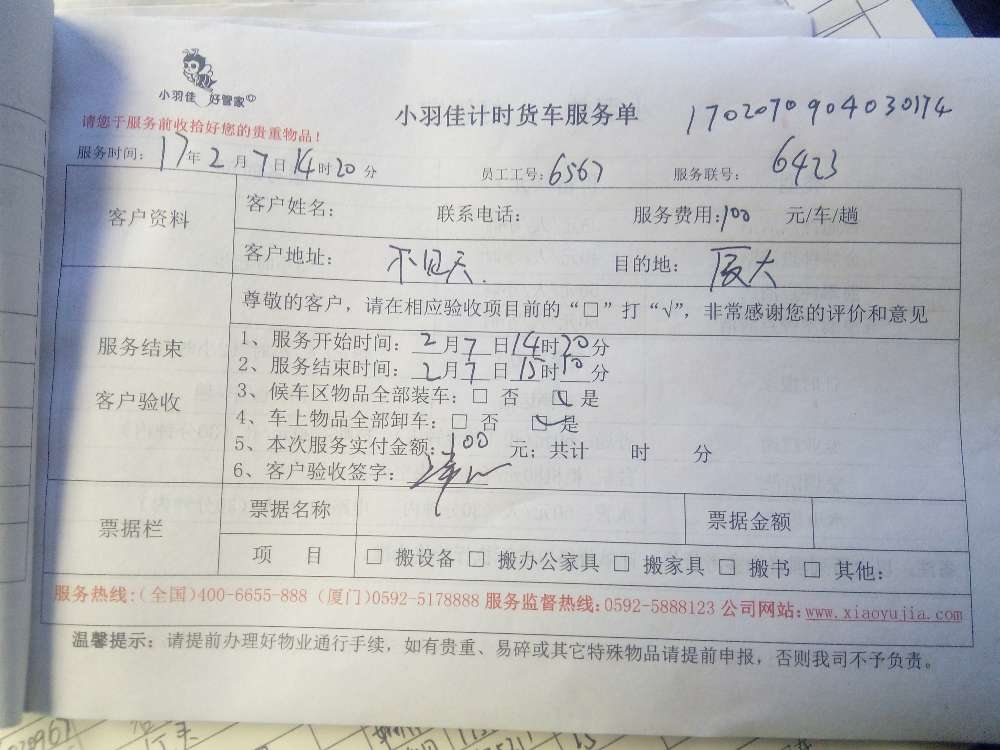 小羽佳 好管家
小羽佳计时货车服务单 1702070904030174
请您于服务前收拾好您的贵重物品！
服务时间：17年2月7日14时20分 员工工号：6567 服务联号：6423
客户资料 客户姓名： 联系电话： 服务费用：100 元/车/趟
客户地址： 不见天 目的地： 厦大
尊敬的客户，请在相应验收项目前的“□”打“√”，非常感谢您的评价和意见
服务结束
客户验收
1、服务开始时间：2月7日14时20分
2、服务结束时间：2月7日15时10分
3、候车区物品全部装车：□ 否 ☑ 是
4、车上物品全部卸车：□ 否 ☑ 是
5、本次服务实付金额：100 元；共计 时 分
6、客户验收签字：
票据栏 票据名称 票据金额
项 目 □ 搬设备 □ 搬办公家具 □ 搬家具 □ 搬书 □ 其他：
服务热线：（全国）400-6655-888（厦门）0592-5178888 服务监督热线：0592-5888123 公司网站：www.xiaoyujia.com
温馨提示：请提前办理好物业通行手续，如有贵重、易碎或其它特殊物品请提前申报，否则我司不予负责。